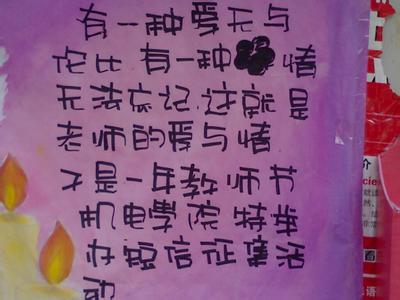 有一种爱无与
伦比 有一种 情
无法忘记.这就是
老师的爱与情
又是一年教师节
机电学院 特举
办短信征集活
动
介
cie
看
语